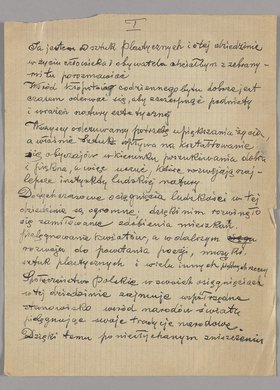 I
Ja jestem
sztuk plastycznych i o tej dziedzinie
w życiu człowieka i obywatela chciałbym z zebrany-
mi tu porozmawiać
Wśród kłopotów codziennego bytu dobrze jest
czasem oderwać się, aby zaczerpnąć podniety
i wrażeń natury estetycznej
Wszyscy odczuwamy potrzebę upiększania życia
a właśnie sztuka wpływa na kształtowanie
się obyczajów w kierunku poszukiwania dobra
i piękna, a więc uczuć, które rozwijają naj-
lepsze instynkty ludzkiej natury
Dotychczasowe osiągnięcia ludzkości w tej
dziedzinie są ogromne, dzięki nim rozwinęło
się zamiłowanie zdobienia mieszkań
pielęgnowania kwiatów, a w dalszym
rozwoju do powstania poezji, muzyki
sztuk plastycznych i wielu innych
Społeczeństwo Polskie w swoich osiągnięciach
w tej dziedzinie zajmuje współrzędne
stanowisko wśród narodów świata
pielęgnując swoje tradycje narodowe.
Dzięki temu po niesłychanym zniszczeniu